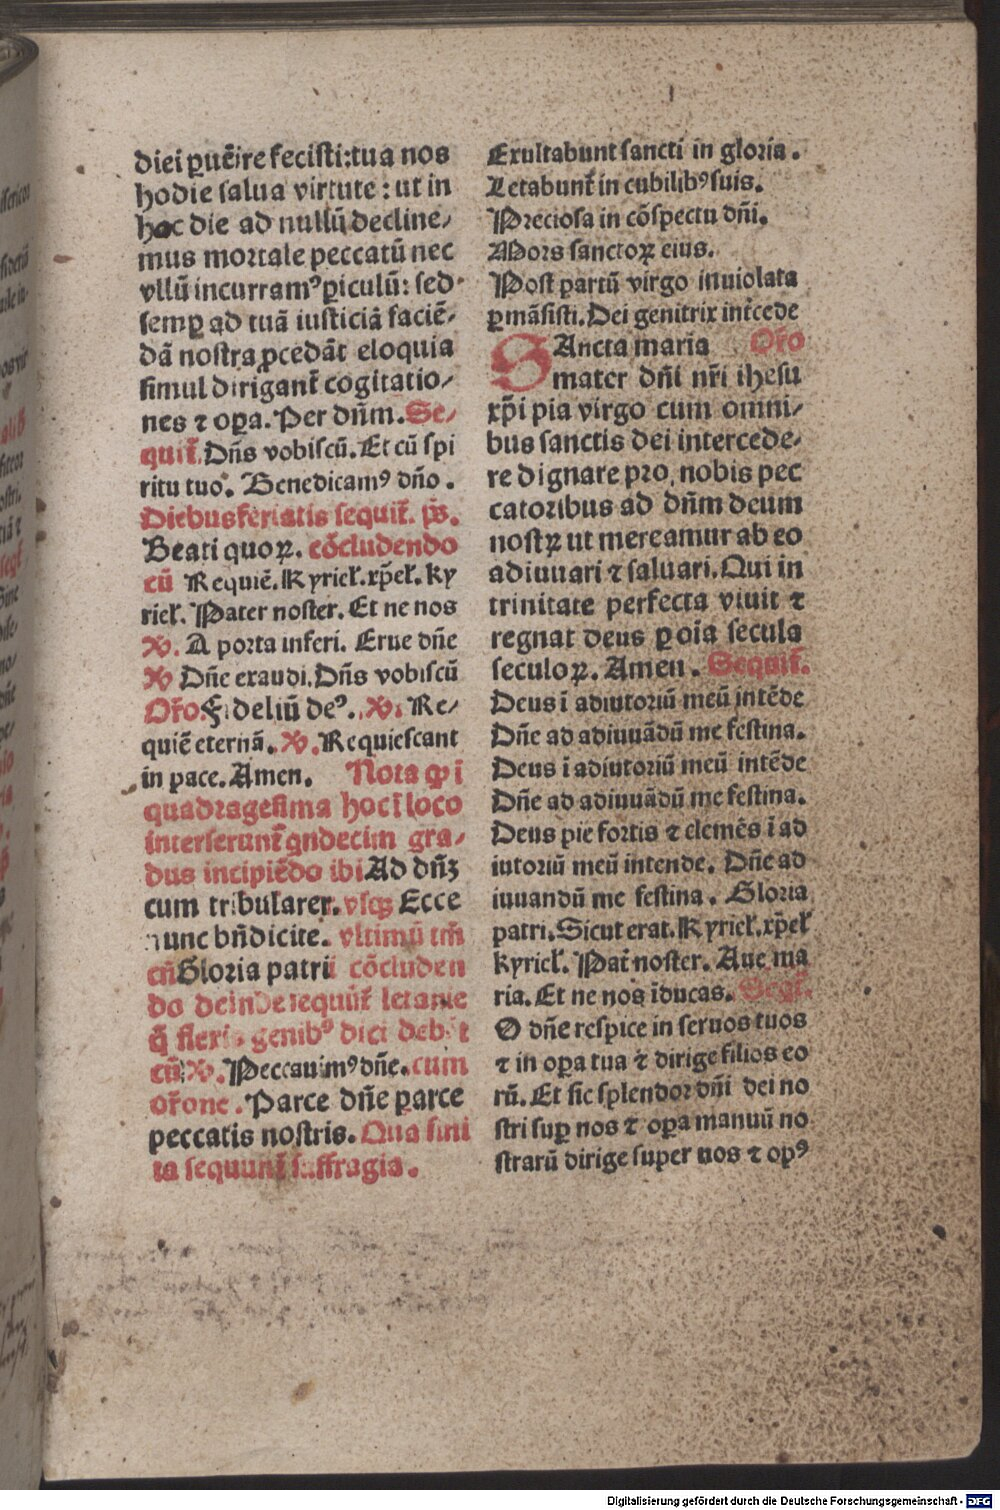 diei ꝑuēire fecisti: tua nos
hodie salua virtute: ut in
hoc die ad nullū decline/
mus mortale peccatū nec
vllū incurramꝰ ꝑiculū: sed
semꝑ ad tuā iusticiā faciē/
dā nostra ꝓcedāt eloquia
simul dirigant᷑ cogitatio/
nes ⁊ oꝑa. Per dn̄m. Se/
quit᷑. Dn̄s vobiscū. Et cū spi
ritu tuo. Benedicamꝰ dn̄o.
Diebus ferialis sequit᷑. ps̄.
Beati quoꝝ. cōcludendo
cū Requiē. Kyriel̄. xp̄el̄. ky
riel̄. Pater noster. Et ne nos
℣. A porta inferi. Erue dn̄e
℣ Dn̄e exaudi. Dn̄s vobiscū
Or̄o. Fideliū deꝰ. ℣. Re/
quiē eternā. ℣. Requiescant
in pace. Amen. Nota ꝙ ī
quadragesima hoc ī loco
interserunt᷑ qndecim gra/
dus incipiēdo ibi Ad dn̄ꝫ
cum tribularer. vsqꝫ Ecce
nunc bn̄dicite. vltimū tm̄
cū Gloria patri cōcluden
do deinde sequūt᷑ letanie
q̄ flexis genibꝰ dici debēt
cū ℣. Peccauimꝰ dn̄e. cum
or̄one. Parce dn̄e ꝑarce
peccatis nostris. Qua fini
ta sequunt᷑ suffragia.
Exultabunt sancti in gloria.
Letabunt᷑ in cubilibꝰ suis.
Preciosa in cōspectu dn̄i.
Mors sanctoꝝ eius.
Post partū virgo inuiolata
ꝑmāsisti. Dei genitrix int᷑cede
SAncta maria Or̄o
mater dn̄i nr̄i ihesu
xp̄i pia virgo cum omni/
bus sanctis dei intercede/
re dignare pro nobis pec
catoribus ad dn̄m deum
nostꝝ ut mereamur ab eo
adiuuari ⁊ saluari. Qui in
trinitate perfecta viuit ⁊
regnat deus ꝑ oīa secula
seculoꝝ. Amen. Sequit᷑.
Deus ī adiutoriū meū intēde
Dn̄e ad adiuuādū me festina.
Deus ī adiutoriū meū intēde
Dn̄e ad adiuuādū me festina.
Deus pie fortis ⁊ clemēs ī ad
iutoriū meū intende. Dn̄e ad
iuuandū me festina. Gloria
patri. Sicut erat. Kyriel̄. xp̄el̄
kyriel̄. Pat᷑ noster. Aue ma
ria. Et ne nos īducas. Seqt᷑.
O dn̄e respice in seruos tuos
⁊ in oꝑa tua ⁊ dirige filios eo
rū. Et sic splendor dn̄i dei no
stri suꝑ nos ⁊ oꝑa manuū no
strarū dirige super nos ⁊ opꝰ
Digitalisierung gefördert durch die Deutsche Forschungsgemeinschaft - DFG